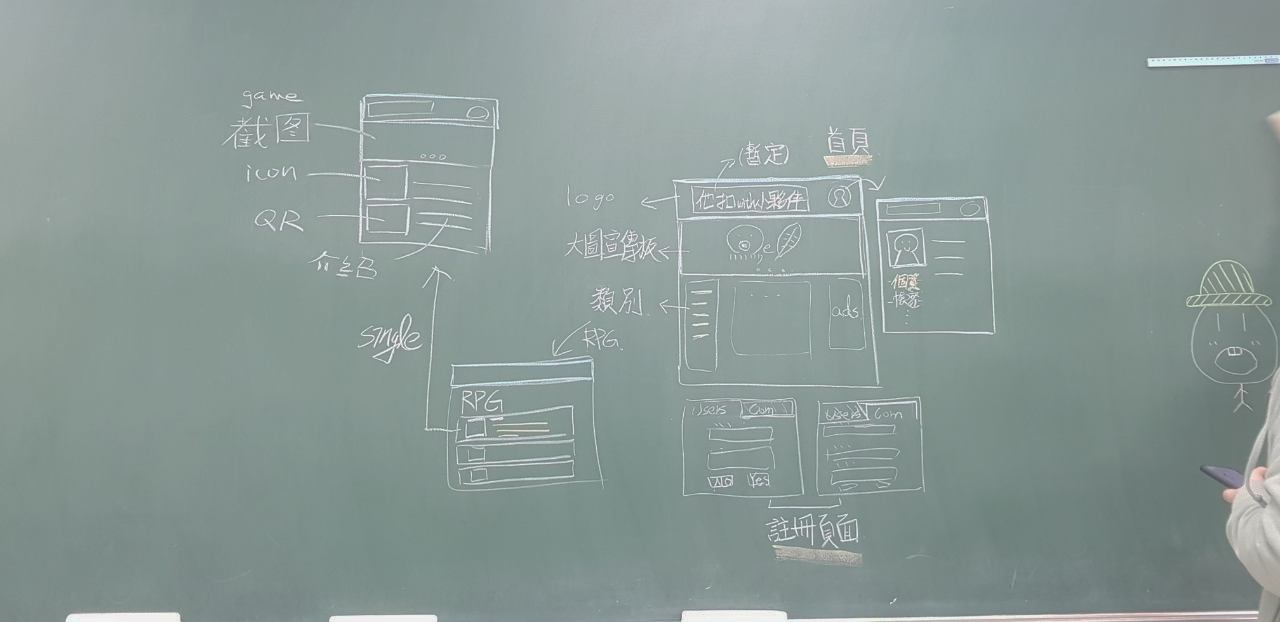 game
截图
icon
QR
介绍
single
RPG.
RPG
(暫定)
首頁
logo
夥伴
大圖宣傳板
類別
ads
個資
Users Com
No Yes
Users Com
註冊頁面